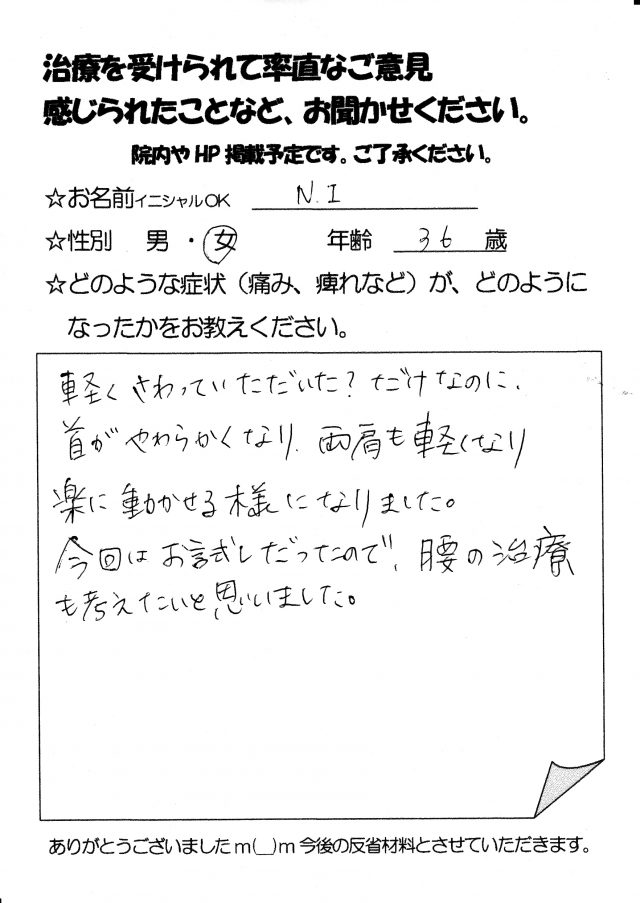 治療を受けられて率直なご意見
感じられたことなど、お聞かせください。
院内やHP掲載予定です。ご了承ください。
☆お名前イニシャルOK N.I
☆性別 男・女 年齢 36 歳
☆どのような症状（痛み、痺れなど）が、どのように
なったかをお教えください。
軽くさわっていただいた？だけなのに、
首がやわらかくなり、両肩も軽くなり
楽に動かせる様になりました。
今回はお試しだったので、腰の治療
も考えたいと思いました。
ありがとうございましたm(__)m今後の反省材料とさせていただきます。